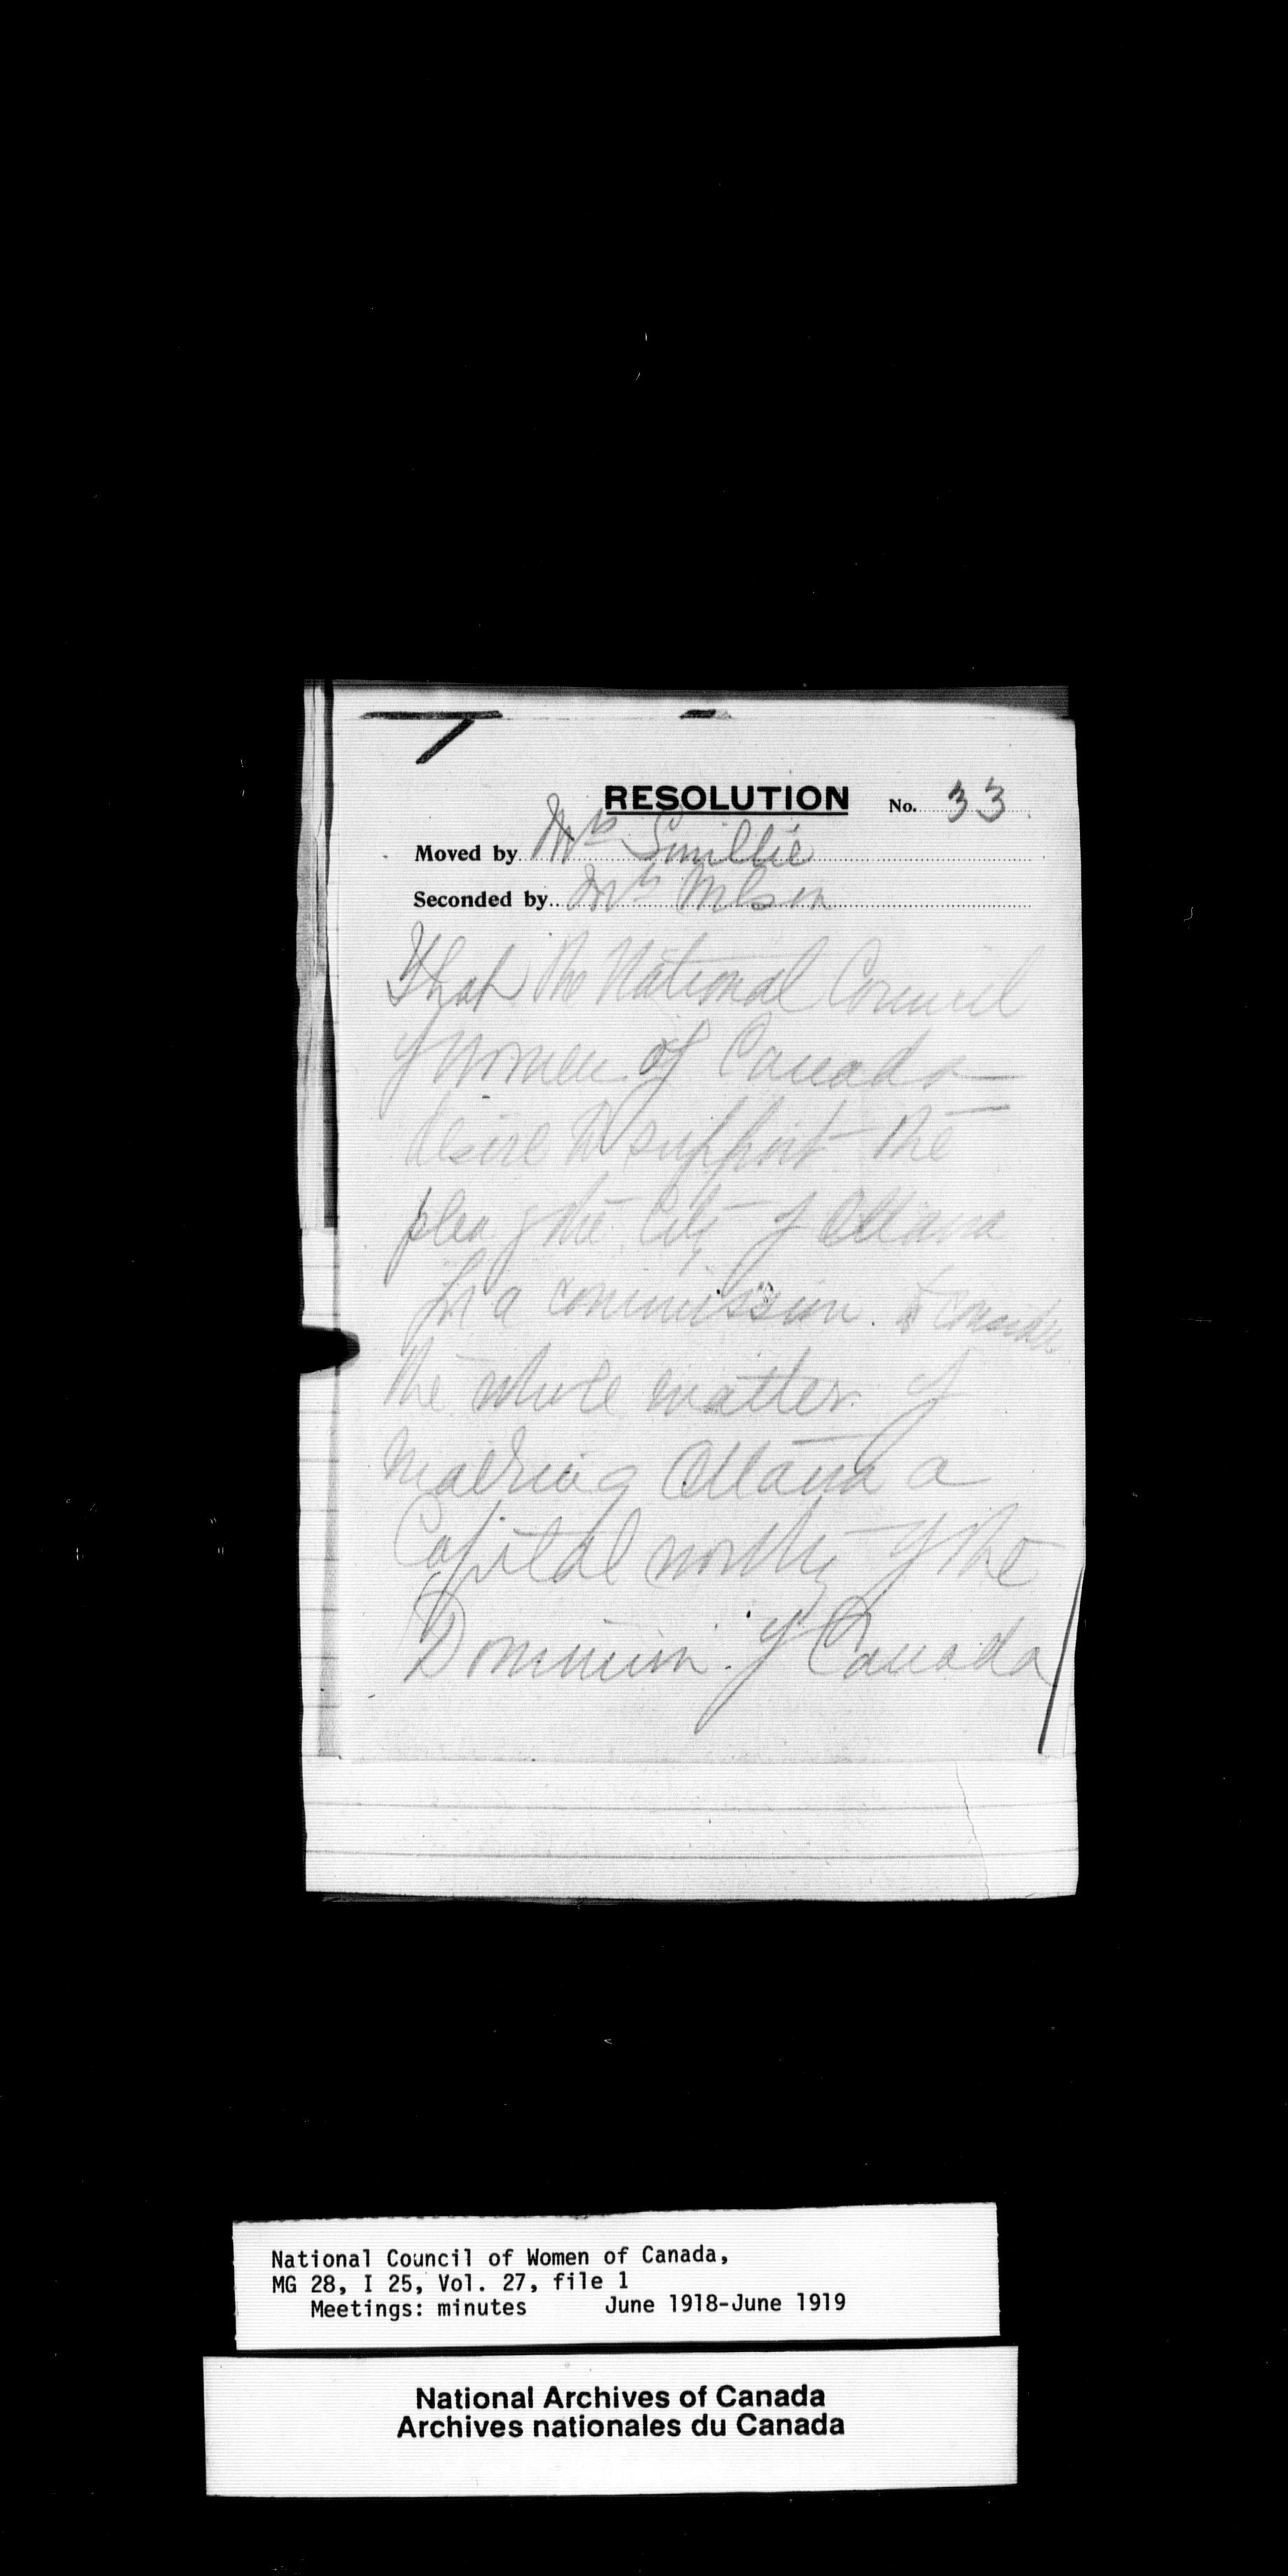 RESOLUTION No. 33
Moved by Mrs Smillie
Seconded by Mrs Wilson
That the National Council
of Women of Canada
desire to support the
plea of the City of Ottawa
for a commission. to consider
the whole matter of
making Ottawa a
Capital worthy of the
Dominion of Canada
National Council of Women of Canada,
MG 28, I 25, Vol. 27, file 1
Meetings: minutes June 1918-June 1919
National Archives of Canada
Archives nationales du Canada